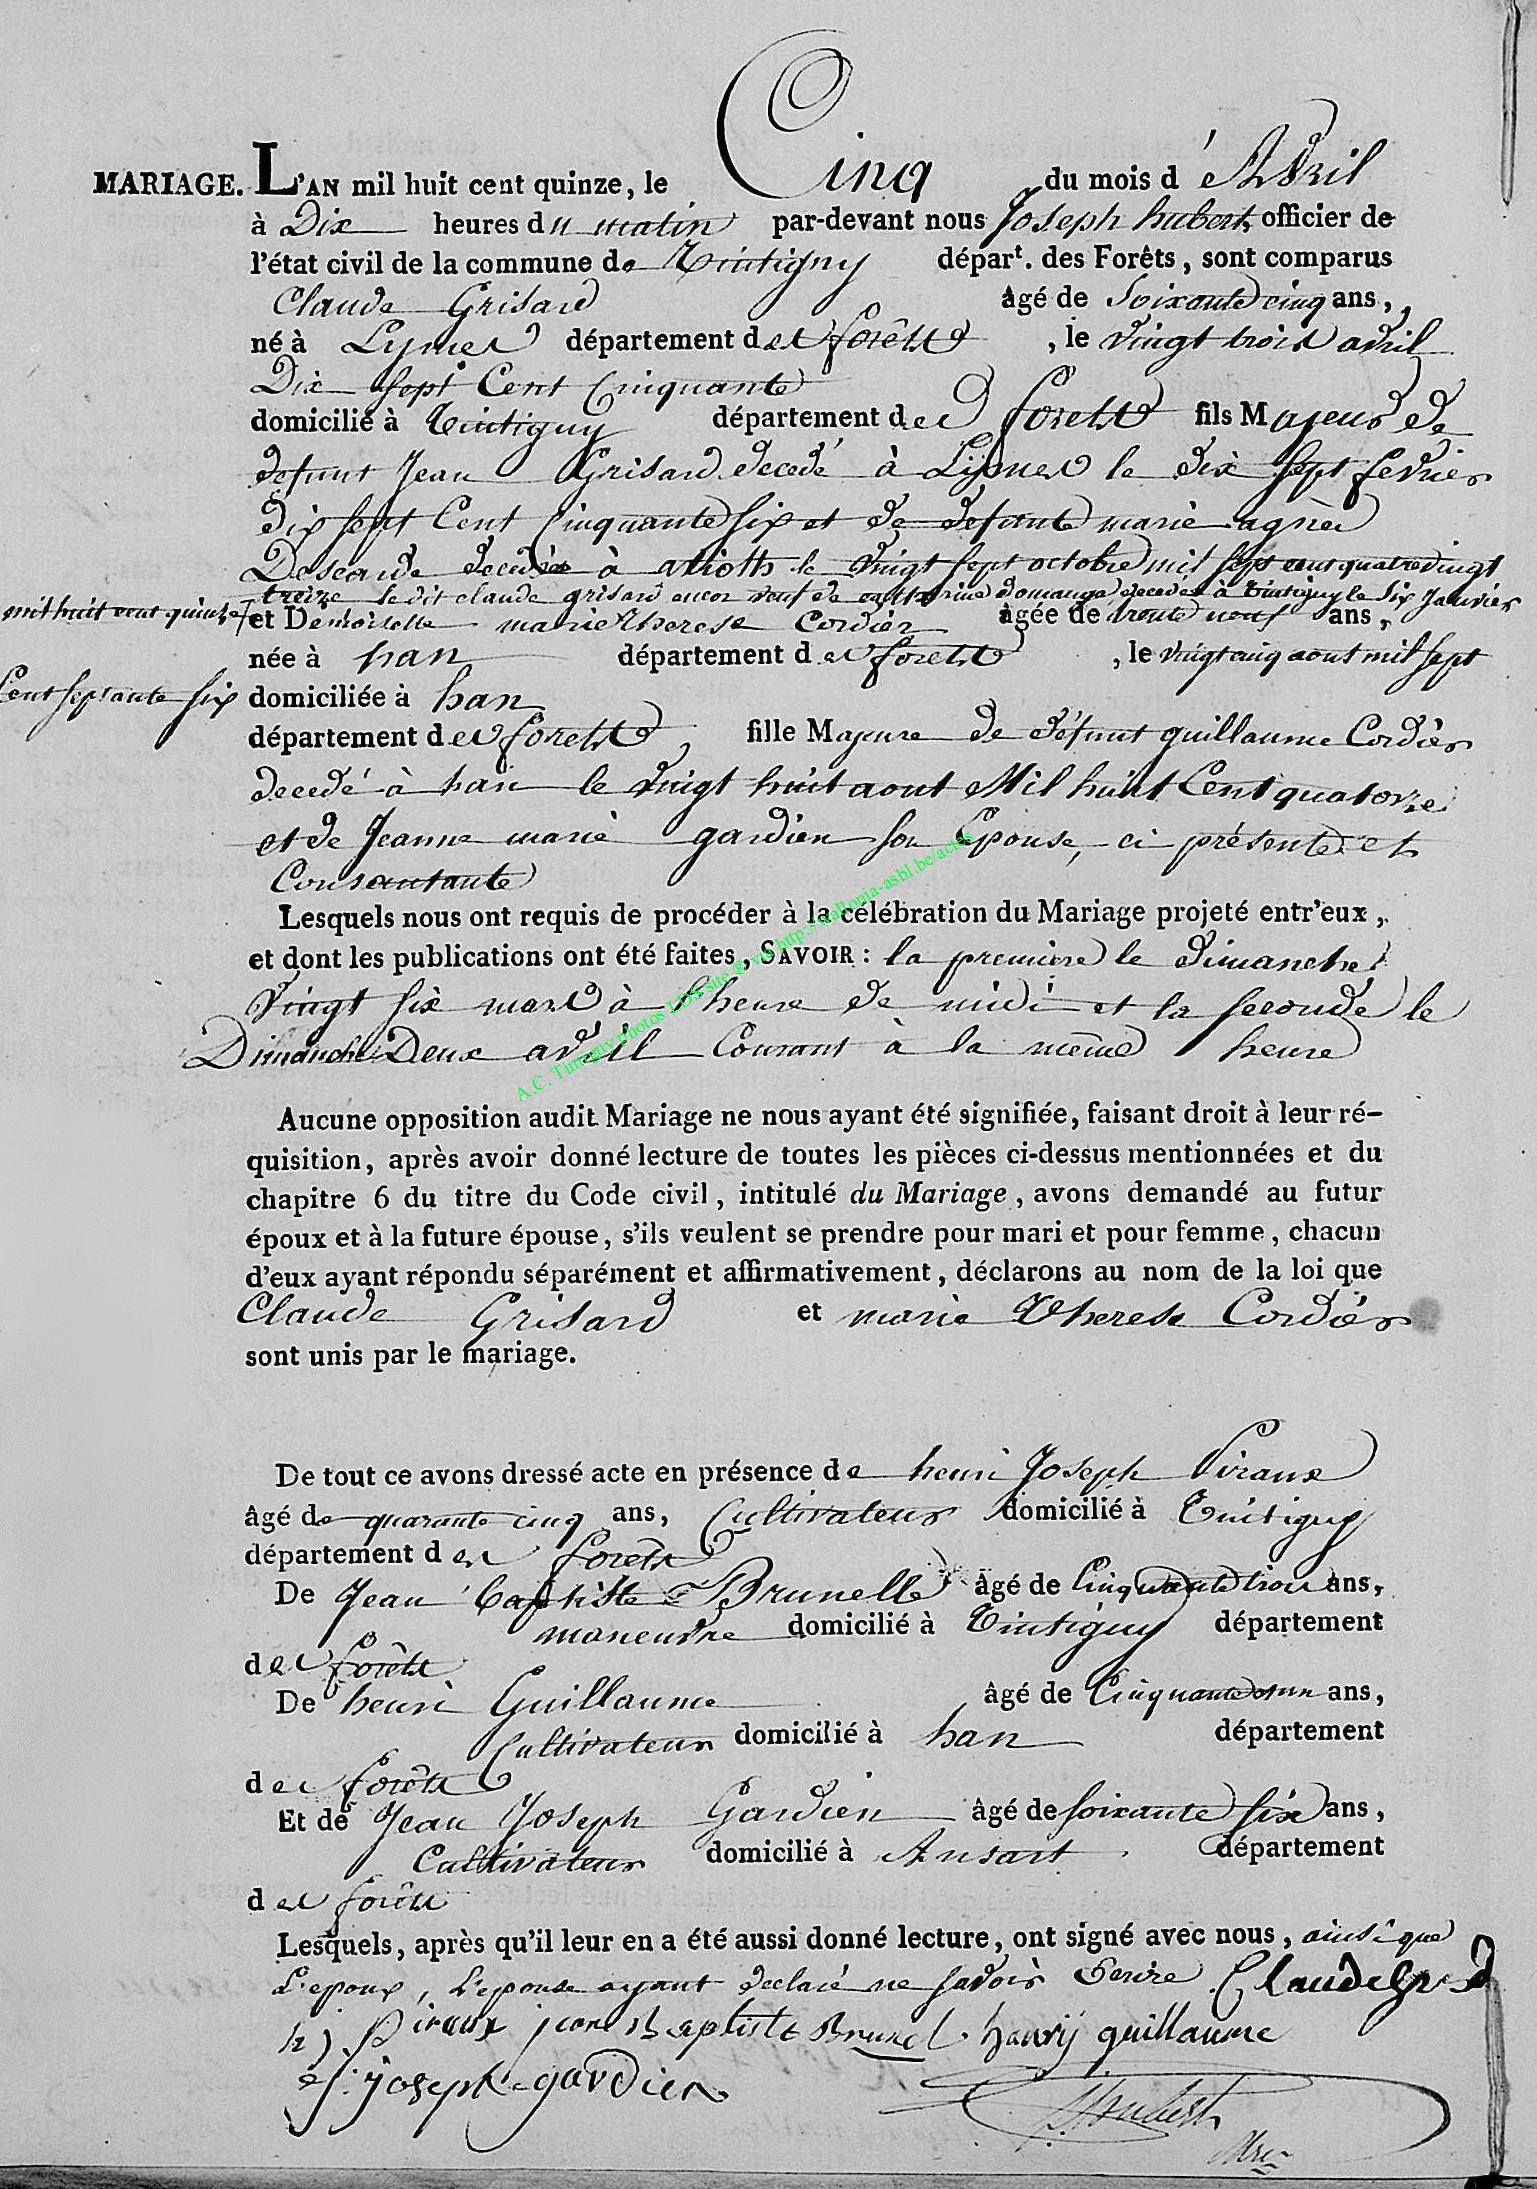 MARIAGE. L'AN mil huit cent quinze, le Cinq du mois d'Avril
à Dix heures du matin par-devant nous Joseph hubert officier de
l'état civil de la commune de Tintigny départ. des Forêts, sont comparus
Claude Grisard âgé de Soixante cinq ans,
né à Lymes département des forêts, le vingt trois avril
Dix sept Cent Cinquante
domicilié à Tintigny département des forets fils Majeur de
defunt Jean Grisard decedé à Lymes le dix sept fevrier
dix sept Cent Cinquante six et de defunte marie agnès
decedée à le vingt sept octobre mil sept cent quatre vingt
treize le dit claude grisard encor veuf de catherine domange decedée à tintigny le six janvier
mil huit cent quinze et Demoiselle marie therese Cordier âgée de trente neuf ans,
née à han département des forets, le vingt cinq aout mil sept
Cent septante six domiciliée à han
département des forets, fille Majeure de défunt guillaume Cordier
decedé à han le vingt huit aout Mil huit Cent quatorze
et de Jeanne marie gardien son Epouse, ci présente et
Consentante
Lesquels nous ont requis de procéder à la célébration du Mariage projeté entr'eux,
et dont les publications ont été faites, SAVOIR : la premiere le dimanche
vingt six mars à l'heure de midi et la seconde le
Dimanche Deux avril Courant à la même heure
A.C. Tintigny photos LDS site ® via http://wallonia-asbl.be/actes
Aucune opposition audit Mariage ne nous ayant été signifiée, faisant droit à leur ré-
quisition, après avoir donné lecture de toutes les pièces ci-dessus mentionnées et du
chapitre 6 du titre du Code civil, intitulé du Mariage, avons demandé au futur
époux et à la future épouse, s'ils veulent se prendre pour mari et pour femme, chacun
d'eux ayant répondu séparément et affirmativement, déclarons au nom de la loi que
Claude Grisard et marie therese Cordier
sont unis par le mariage.
De tout ce avons dressé acte en présence de henri Joseph Piraux
âgé de quarante cinq ans, Cultivateur domicilié à Tintigny
département des forêts
De Jean Baptiste Brunelle âgé de Cinquante trois ans,
maneuvre domicilié à Tintigny département
des forêts
De henri Guillaume âgé de Cinquante ans,
Cultivateur domicilié à han département
des forêts
Et de Jean Joseph Gardien âgé de soixante six ans,
Cultivateur domicilié à Ansart département
des forêts
Lesquels, après qu'il leur en a été aussi donné lecture, ont signé avec nous, ainsi que
L'epoux, L'epouse ayant declaré ne savoir Ecrire. Claude
h j Piraux jean Baptiste Brunel henry guillaume
j: joseph gardien
J. Hubert